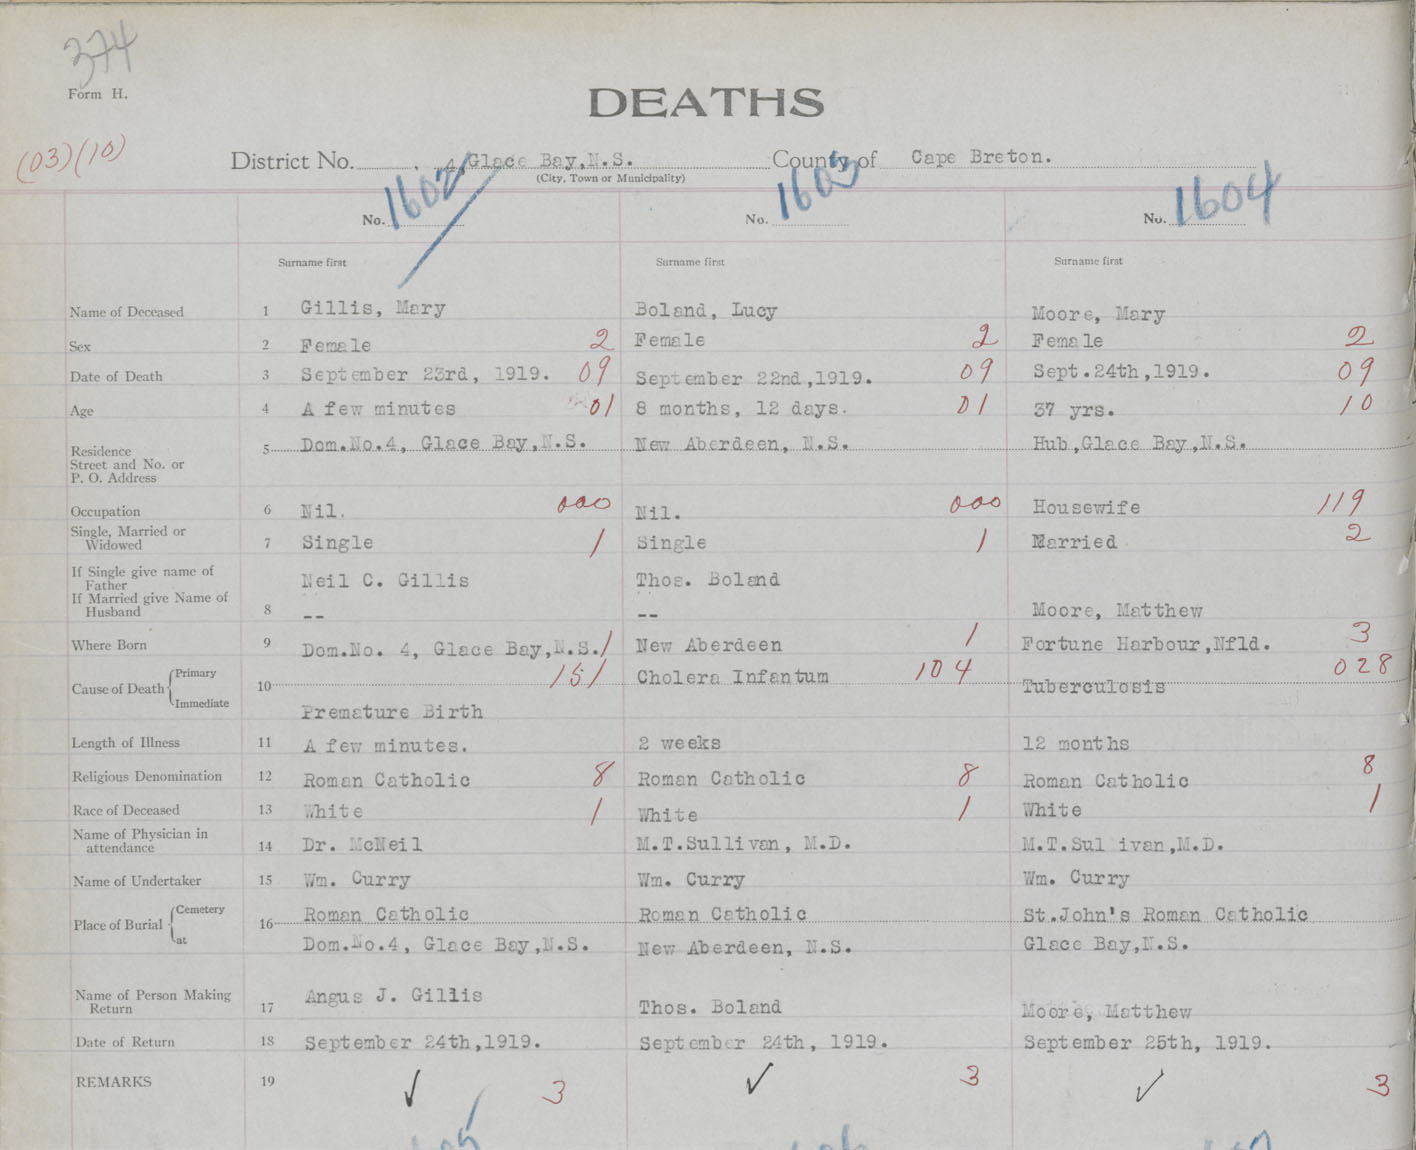 374
Form H.
DEATHS
(03)(10)
District No. 4, Glace Bay,N.S. County of Cape Breton.
(City, Town or Municipality)
No. 1602 No. 1603 No. 1604
Surname first Surname first Surname first
Name of Deceased 1 Gillis, Mary Boland, Lucy Moore, Mary
Sex 2 Female 2 Female 2 Female 2
Date of Death 3 September 23rd, 1919. 09 September 22nd,1919. 09 Sept.24th,1919. 09
Age 4 A few minutes 01 8 months, 12 days. 01 37 yrs. 10
Residence
Street and No. or
P. O. Address
5 Dom.No.4, Glace Bay,N.S. New Aberdeen, N.S. Hub,Glace Bay,N.S.
Occupation 6 Nil. 000 Nil. 000 Housewife 119
Single, Married or
Widowed 7 Single 1 Single 1 Married 2
If Single give name of
Father Neil C. Gillis Thos. Boland
If Married give Name of
Husband 8 -- -- Moore, Matthew
Where Born 9 Dom.No. 4, Glace Bay,N.S. 1 New Aberdeen 1 Fortune Harbour,Nfld. 3
Cause of Death Primary
Immediate
10 151 Cholera Infantum 104 Tuberculosis 028
Premature Birth
Length of Illness 11 A few minutes. 2 weeks 12 months
Religious Denomination 12 Roman Catholic 8 Roman Catholic 8 Roman Catholic 8
Race of Deceased 13 White 1 White 1 White 1
Name of Physician in
attendance 14 Dr. McNeil M.T.Sullivan, M.D. M.T.Sul ivan,M.D.
Name of Undertaker 15 Wm. Curry Wm. Curry Wm. Curry
Place of Burial Cemetery
at
16 Roman Catholic Roman Catholic St.John's Roman Catholic
Dom.No.4, Glace Bay,N.S. New Aberdeen, N.S. Glace Bay,N.S.
Name of Person Making
Return 17 Angus J. Gillis Thos. Boland Moore, Matthew
Date of Return 18 September 24th,1919. September 24th, 1919. September 25th, 1919.
REMARKS 19 ✓ 3 ✓ 3 ✓ 3